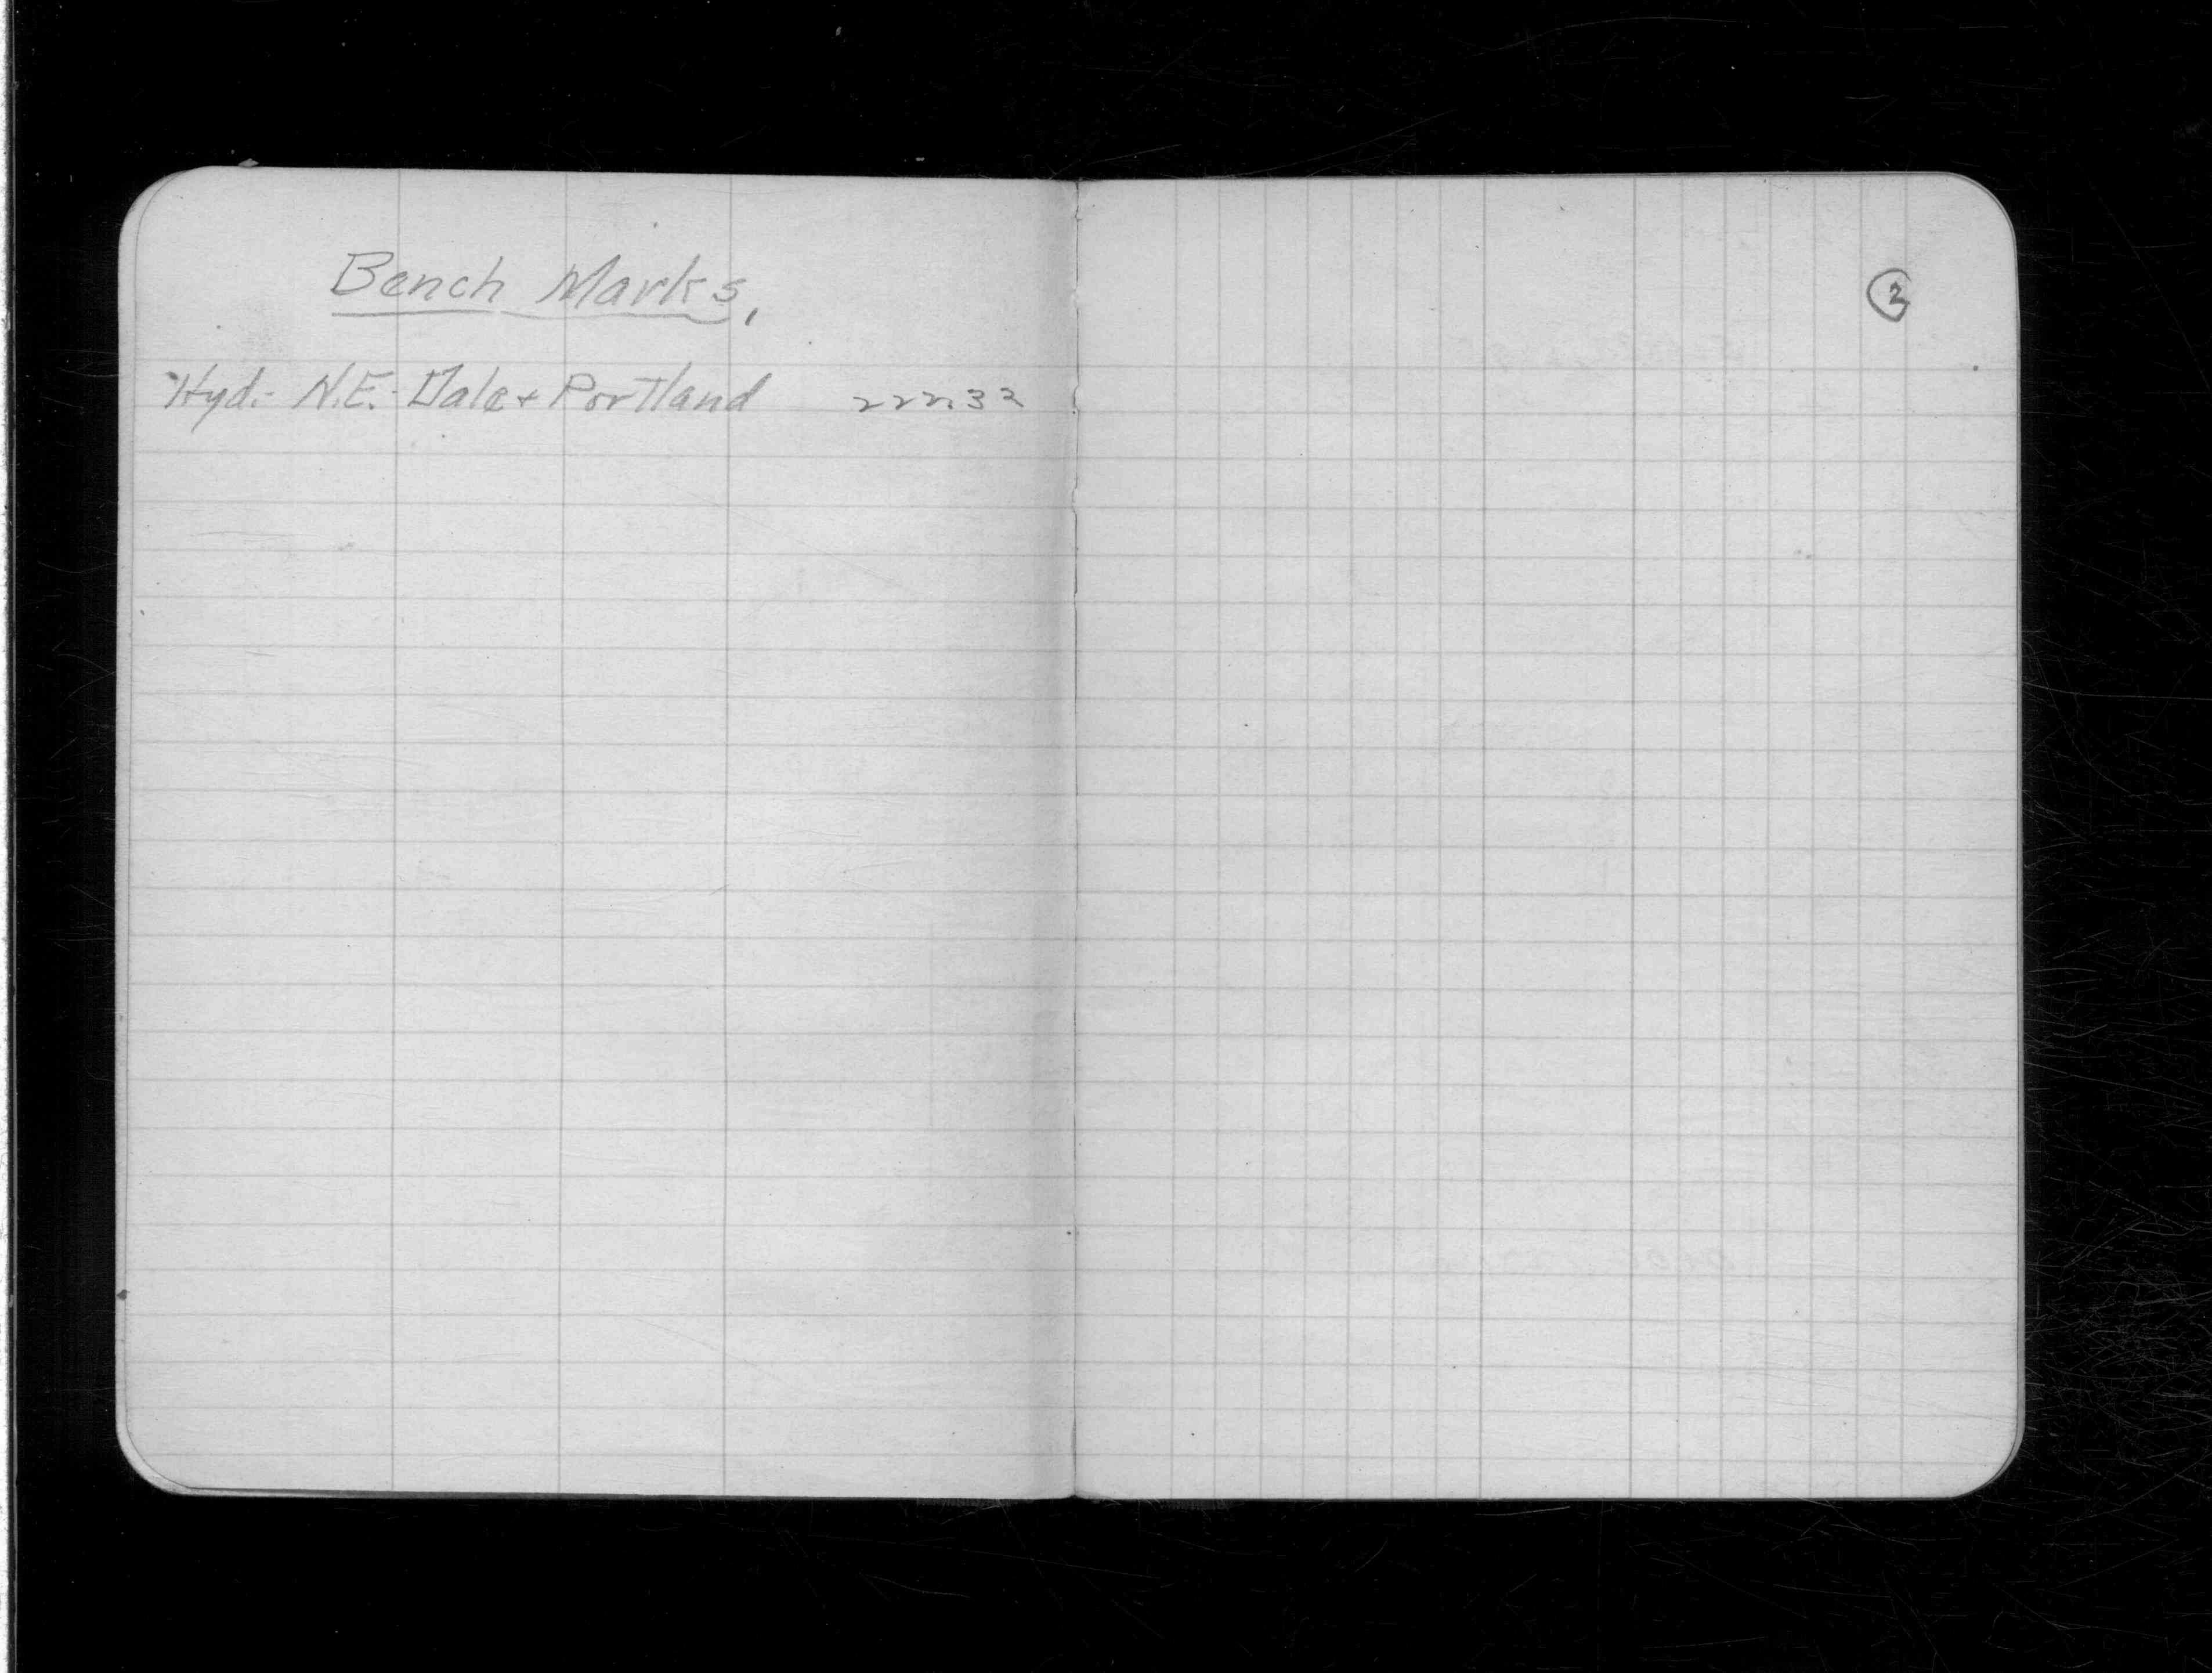 Bench Marks,
Hyd:- N.E. Dale & Portland 222.32
2